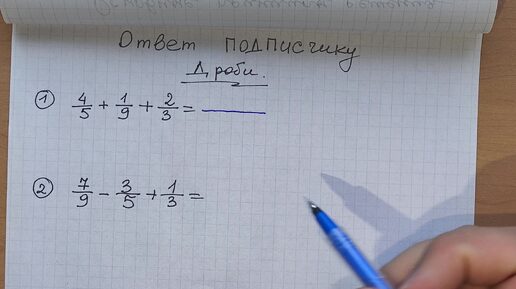 Основные
Ответ подписчику
Дроби.
① 4/5 + 1/9 + 2/3 =
② 7/9 - 3/5 + 1/3 =